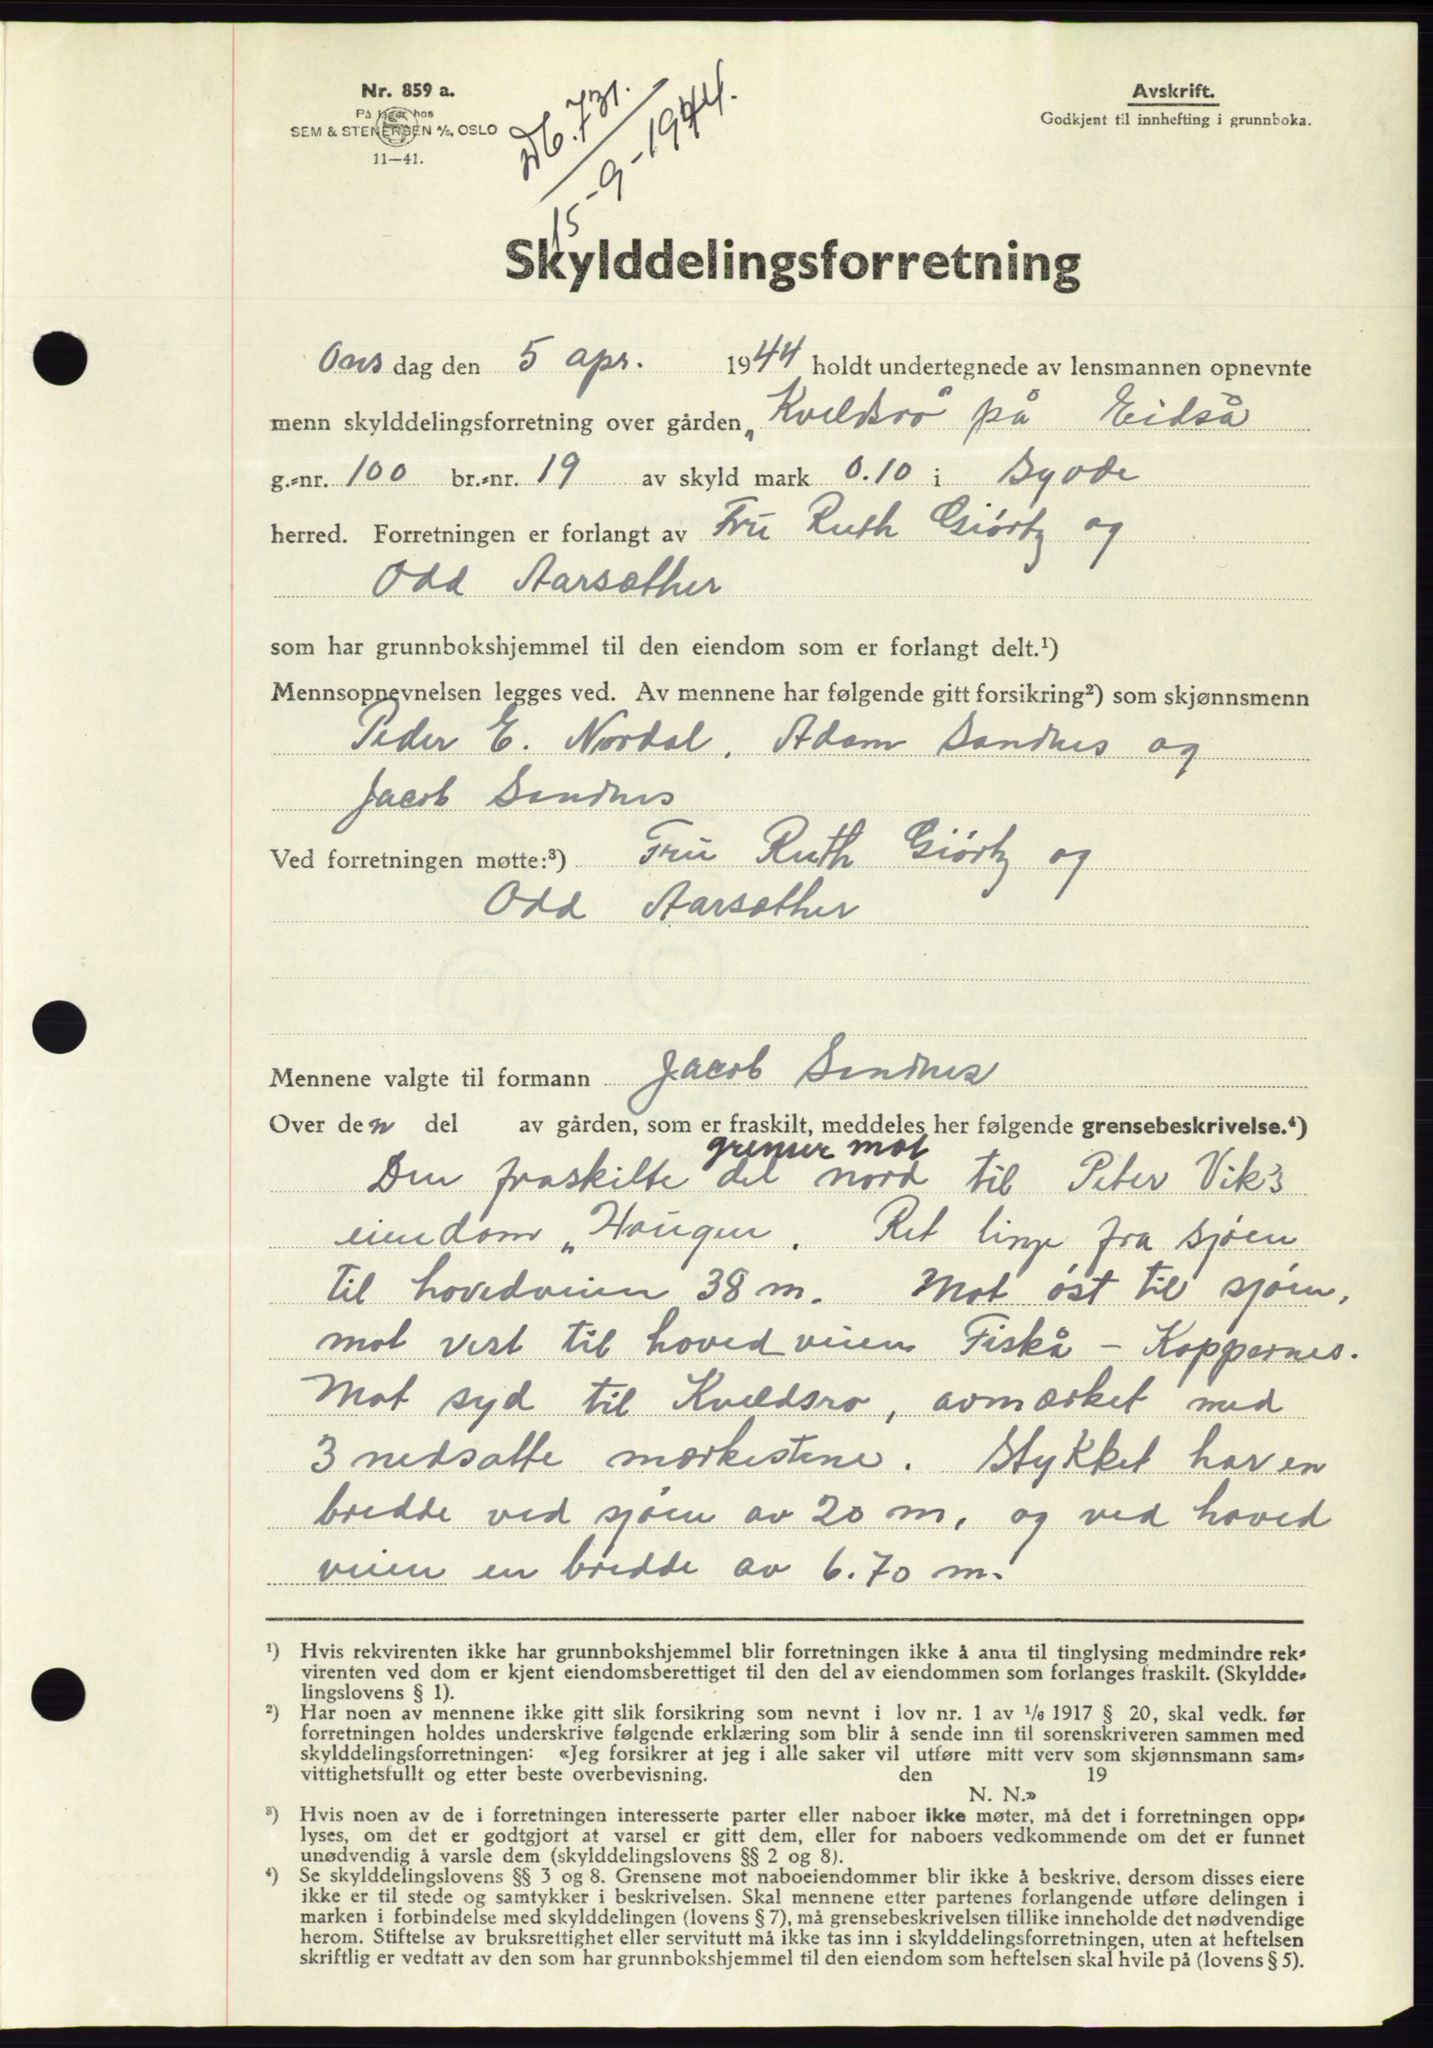 Nr. 859 a.
På lager hos
SEM & STENERSEN A/S, OSLO
11—41.
Db. 731.
15-9-1944.
Avskrift.
Godkjent til innhefting i grunnboka.
Skylddelingsforretning
Ons dag den 5 apr. 1944 holdt undertegnede av lensmannen opnevnte
menn skylddelingsforretning over gården „Kveldsro på Eidså
g.-nr. 100 br.-nr. 19 av skyld mark 0.10 i Syvde
herred. Forretningen er forlangt av Fru Ruth Giørtz og
Odd Aarsæther
som har grunnbokshjemmel til den eiendom som er forlangt delt.¹)
Mennsopnevnelsen legges ved. Av mennene har følgende gitt forsikring²) som skjønnsmenn
Peder E. Nordal, Adam Sandnes og
Jacob Sandnes
Ved forretningen møtte:³) Fru Ruth Giørtz og
Odd Aarsæther
Mennene valgte til formann Jacob Sandnes
Over den del av gården, som er fraskilt, meddeles her følgende grensebeskrivelse.⁴)
grenser mot
Den fraskilte del nord til Peter Vik's
eiendom „Haugen. Ret linje fra sjøen
til hovedveien 38 m. Mot øst til sjøen,
mot vest til hovedveien Fiskå – Koppernes.
Mot syd til Kveldsro, avmærket med
3 nedsatte merkestene. Stykket har en
bredde ved sjøen av 20 m, og ved hoved
veien en bredde av 6.70 m.
¹) Hvis rekvirenten ikke har grunnbokshjemmel blir forretningen ikke å anta til tinglysing medmindre rek-
virenten ved dom er kjent eiendomsberettiget til den del av eiendommen som forlanges fraskilt. (Skyldde-
lingslovens § 1).
²) Har noen av mennene ikke gitt slik forsikring som nevnt i lov nr. 1 av 1/6 1917 § 20, skal vedk. før
forretningen holdes underskrive følgende erklæring som blir å sende inn til sorenskriveren sammen med
skylddelingsforretningen: «Jeg forsikrer at jeg i alle saker vil utføre mitt verv som skjønnsmann sam-
vittighetsfullt og etter beste overbevisning. den 19
N. N.»
³) Hvis noen av de i forretningen interesserte parter eller naboer ikke møter, må det i forretningen opp-
lyses, om det er godtgjort at varsel er gitt dem, eller for naboers vedkommende om det er funnet
unødvendig å varsle dem (skylddelingslovens §§ 2 og 8).
⁴) Se skylddelingslovens §§ 3 og 8. Grensene mot naboeiendommer blir ikke å beskrive, dersom disses eiere
ikke er til stede og samtykker i beskrivelsen. Skal mennene etter partenes forlangende utføre delingen i
marken i forbindelse med skylddelingen (lovens § 7), må grensebeskrivelsen tillike inneholde det nødvendige
herom. Stiftelse av bruksrettighet eller servitutt må ikke tas inn i skylddelingsforretningen, uten at heftelsen
skriftlig er vedtatt av den som har grunnbokshjemmel til den eiendom som heftelsen skal hvile på (lovens § 5).